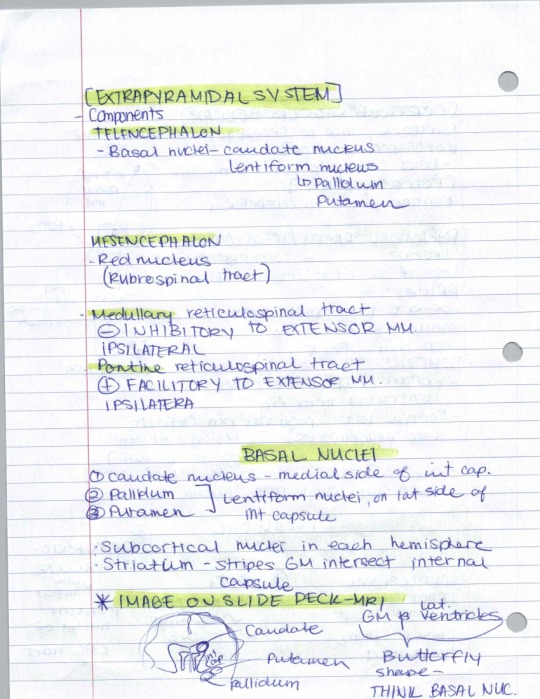 [EXTRAPYRAMIDAL SYSTEM]
- Components
TELENCEPHALON
- Basal nuclei - caudate nucleus
Lentiform nucleus
↳ Pallidum
Putamen
MESENCEPHALON
- Red nucleus
(Rubrespinal tract)
· Medullary reticulospinal tract
⊖ INHIBITORY TO EXTENSOR MM
IPSILATERAL
Pontine reticulospinal tract
⊕ FACILITORY TO EXTENSOR MM.
IPSILATERA
BASAL NUCLEI
① caudate nucleus - medial side of int cap.
② Pallidum
③ Putamen ] Lentiform nuclei, on lat side of
int capsule
· Subcortical nuclei in each hemisphere
· Striatum - stripes GM intersect internal
capsule
* IMAGE ON SLIDE DECK - MRI
lat.
GM & ventricles
Caudate
int cap
Putamen
Pallidum
Butterfly
shape -
THINK BASAL NUC.